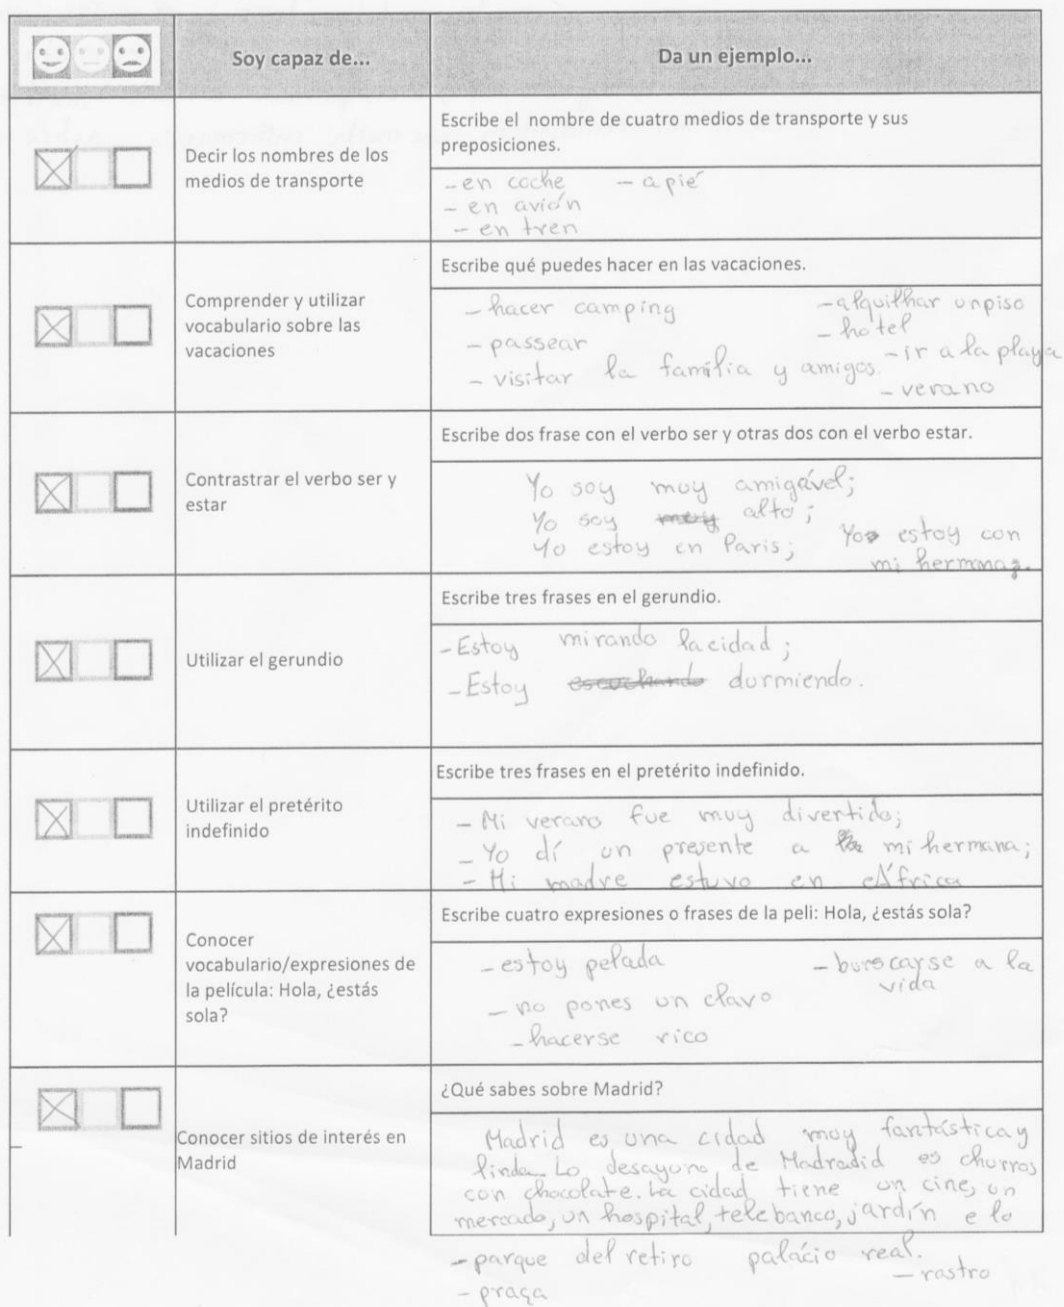 Soy capaz de...
Da un ejemplo...
Decir los nombres de los
medios de transporte
Escribe el nombre de cuatro medios de transporte y sus
preposiciones.
- en coche - a pié
- en avión
- en tren
Comprender y utilizar
vocabulario sobre las
vacaciones
Escribe qué puedes hacer en las vacaciones.
- hacer camping
- passear
- visitar la família y amigos.
- alquilhar un piso
- hotel
- ir a la playa
- verano
Contrastrar el verbo ser y
estar
Escribe dos frase con el verbo ser y otras dos con el verbo estar.
Yo soy muy amigável;
Yo soy muy alto;
Yo estoy en Paris; Yo estoy con
mi hermana.
Utilizar el gerundio
Escribe tres frases en el gerundio.
- Estoy mirando la cidad;
- Estoy escuchando dormiendo.
Utilizar el pretérito
indefinido
Escribe tres frases en el pretérito indefinido.
- Mi verano fue muy divertido;
- Yo dí un presente a mi hermana;
- Mi madre estuvo en África
Conocer
vocabulario/expresiones de
la película: Hola, ¿estás
sola?
Escribe cuatro expresiones o frases de la peli: Hola, ¿estás sola?
- estoy pelada
- no pones un clavo
- hacerse rico
- buscarse a la
vida
Conocer sitios de interés en
Madrid
¿Qué sabes sobre Madrid?
Madrid es una cidad muy fantástica y
linda. Lo desayuno de Madradid es churros
con chocolate. La cidad tiene un cine, un
mercado, un hospital, telebanco, jardín e lo
- parque del retiro palácio real.
- rastro
- praça